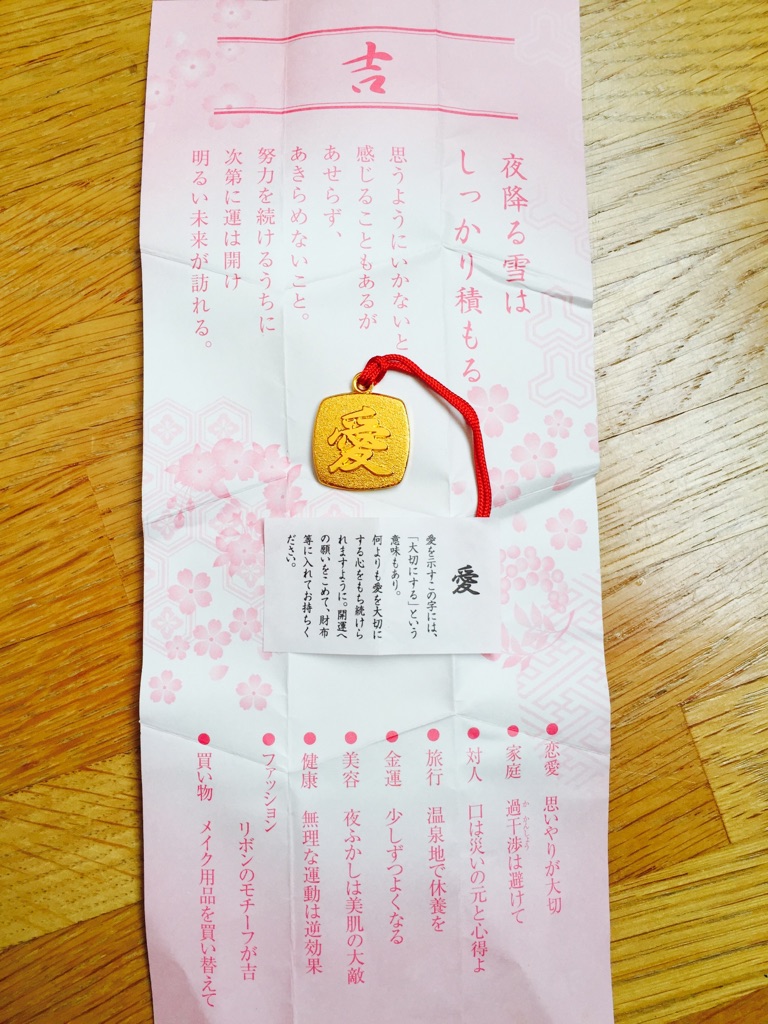 吉
夜降る雪は
しっかり積もる
思うようにいかないと
感じることもあるが
あせらず、
あきらめないこと。
努力を続けるうちに
次第に運は開け
明るい未来が訪れる。
愛
愛
愛を示すこの字には、
「大切にする」という
意味もあり。
何よりも愛を大切に
する心をもち続けら
れますように。開運へ
の願いをこめて、財布
等に入れてお持ちく
ださい。
●恋愛 思いやりが大切
●家庭 過干渉は避けて
か かんしょう
●対人 口は災いの元と心得よ
●旅行 温泉地で休養を
●金運 少しずつよくなる
●美容 夜ふかしは美肌の大敵
●健康 無理な運動は逆効果
●ファッション
リボンのモチーフが吉
●買い物 メイク用品を買い替えて